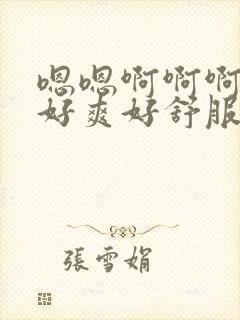 嗯嗯啊啊啊
好爽好舒服
張雪娟